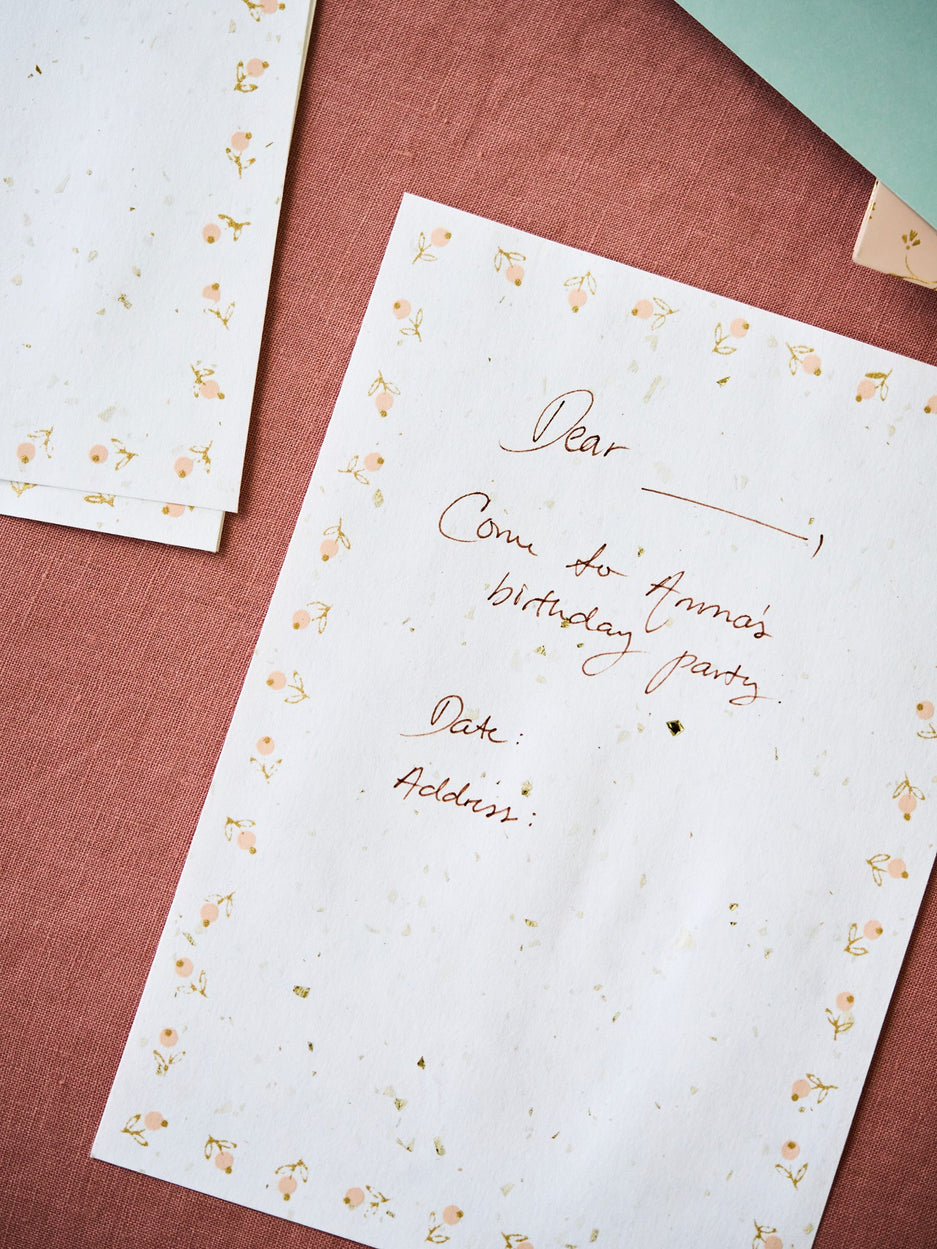 Dear
________,
Come to Anna's
birthday party.
Date:
Address: